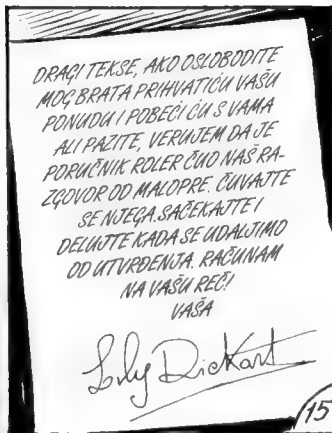 DRAGI TEKSE, AKO OSLOBODITE
MOG BRATA PRIHVATIĆU VAŠU
PONUDU I POBEĆI ĆU S VAMA
ALI PAZITE, VERUJEM DA JE
PORUČNIK ROLER ČUO NAŠ RA-
ZGOVOR OD MALOPRE. ČUVAJTE
SE NJEGA. SAČEKAJTE I
DELUJTE KADA SE UDALJIMO
OD UTVRĐENJA. RAČUNAM
NA VAŠU REČ!
VAŠA
Lily Dickart
15